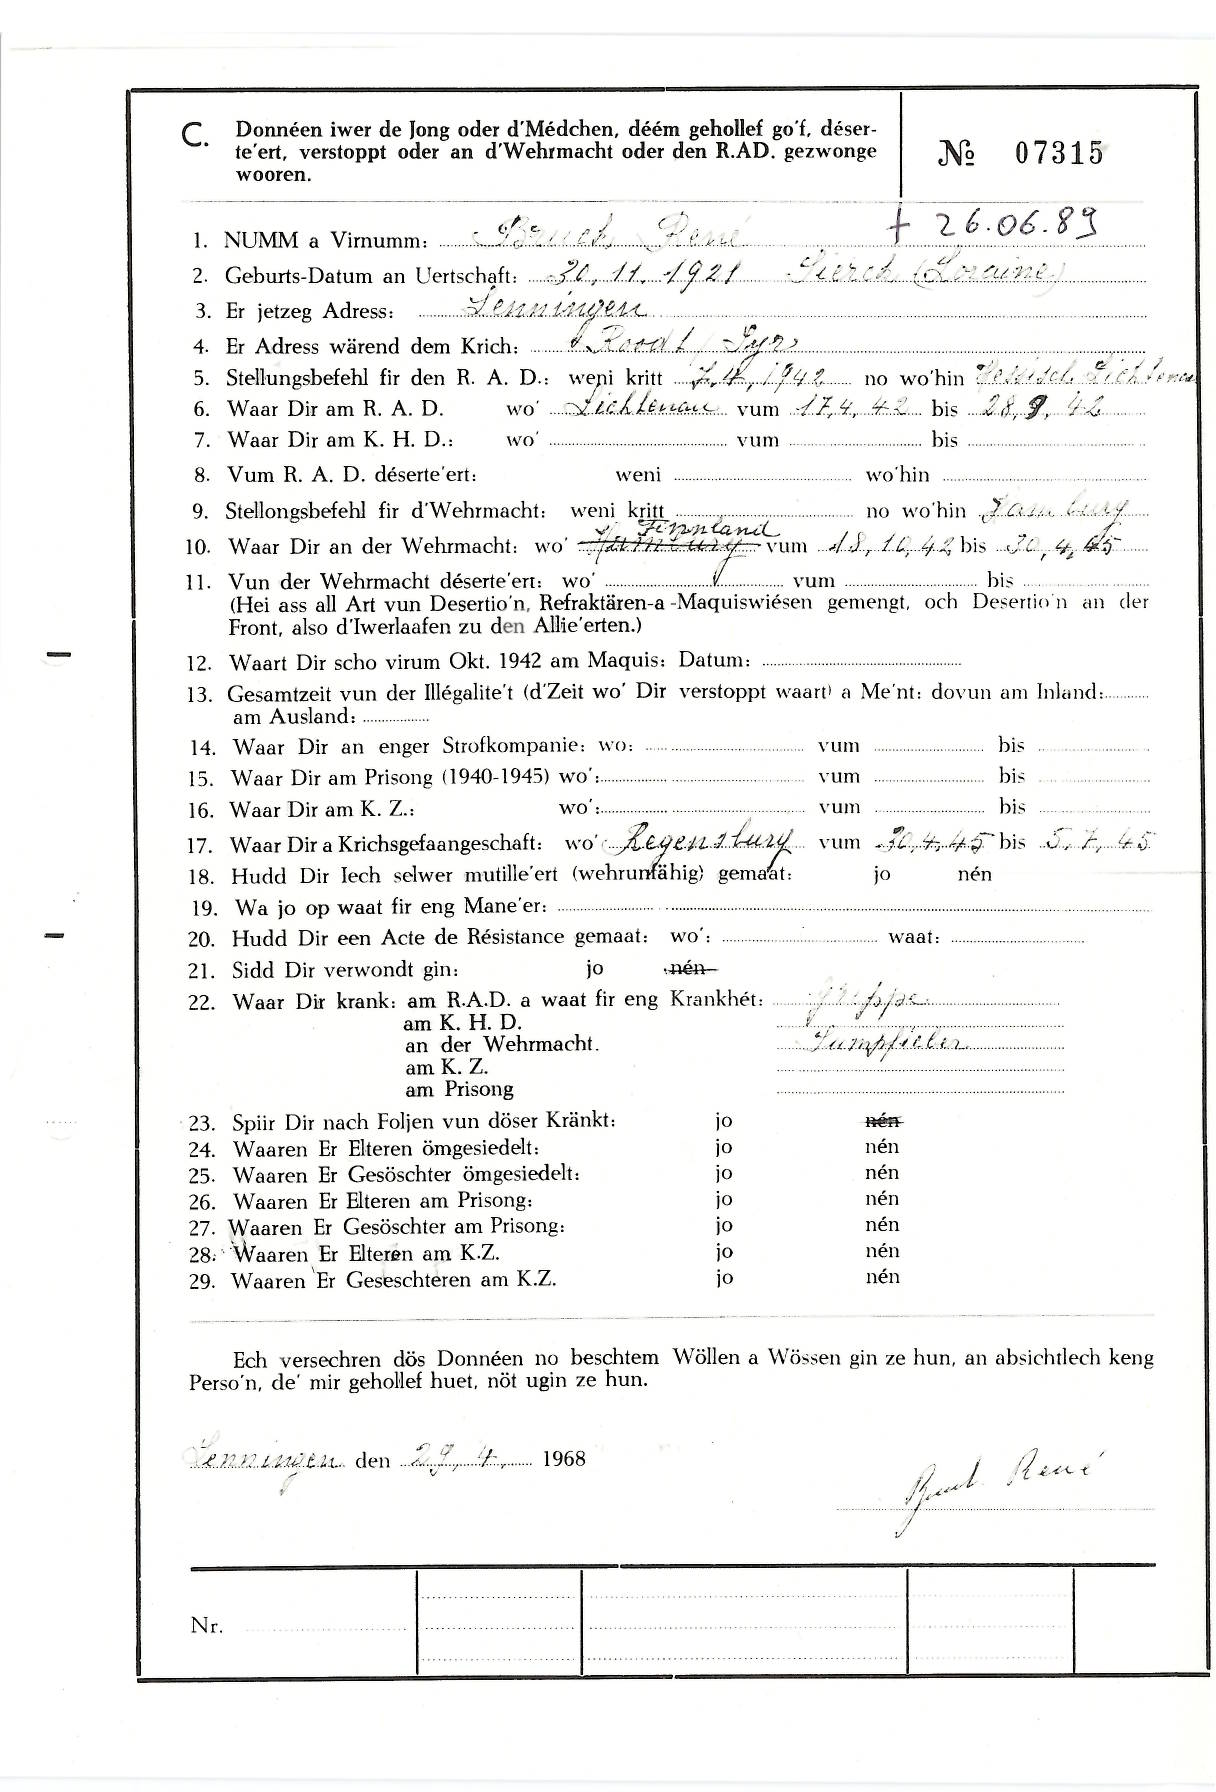 C. Donnéen iwer de Jong oder d'Médchen, déém gehollef go'f, déser-
te'ert, verstoppt oder an d'Wehrmacht oder den R.AD. gezwonge
wooren.
№ 07315
† 26.06.89
1. NUMM a Virnumm: Bruch René
2. Geburts-Datum an Uertschaft: 30.11.1921 Sierck (Loraine)
3. Er jetzeg Adress: Lenningen
4. Er Adress wärend dem Krich: Roodt / Syr
5. Stellungsbefehl fir den R. A. D.: weni kritt 7.4.1942 no wo'hin Hessisch Lichtenau
6. Waar Dir am R. A. D. wo' Lichtenau vum 17.4.42 bis 28.9.42
7. Waar Dir am K. H. D.: wo' vum bis
8. Vum R. A. D. déserte'ert: weni wo'hin
9. Stellongsbefehl fir d'Wehrmacht: weni kritt no wo'hin Hamburg
Finnland
10. Waar Dir an der Wehrmacht: wo' Hamburg vum 18.10.42 bis 30.4.45
11. Vun der Wehrmacht déserte'ert: wo' vum bis
(Hei ass all Art vun Desertio'n, Refraktären-a -Maquiswiésen gemengt, och Desertio'n an der
Front, also d'Iwerlaafen zu den Allie'erten.)
12. Waart Dir scho virum Okt. 1942 am Maquis: Datum:
13. Gesamtzeit vun der Illégalite't (d'Zeit wo' Dir verstoppt waart) a Me'nt: dovun am Inland:
am Ausland:
14. Waar Dir an enger Strofkompanie: wo: vum bis
15. Waar Dir am Prisong (1940-1945) wo': vum bis
16. Waar Dir am K. Z.: wo': vum bis
17. Waar Dir a Krichsgefaangeschaft: wo' Regensburg vum 30.4.45 bis 5.7.45
18. Hudd Dir Iech selwer mutille'ert (wehrunfähig) gemaat: jo nén
19. Wa jo op waat fir eng Mane'er:
20. Hudd Dir een Acte de Résistance gemaat: wo': waat:
21. Sidd Dir verwondt gin: jo nén
22. Waar Dir krank: am R.A.D. a waat fir eng Krankhét: Grippe
am K. H. D.
an der Wehrmacht. Sumpfieber
am K. Z.
am Prisong
23. Spiir Dir nach Foljen vun döser Kränkt: jo nén
24. Waaren Er Elteren ömgesiedelt: jo nén
25. Waaren Er Gesöschter ömgesiedelt: jo nén
26. Waaren Er Elteren am Prisong: jo nén
27. Waaren Er Gesöschter am Prisong: jo nén
28. Waaren Er Elteren am K.Z. jo nén
29. Waaren Er Geseschteren am K.Z. jo nén
Ech versechren dös Donnéen no beschtem Wöllen a Wössen gin ze hun, an absichtlech keng
Perso'n, de' mir gehollef huet, nöt ugin ze hun.
Lenningen den 29.4. 1968
Bruch René
Nr.